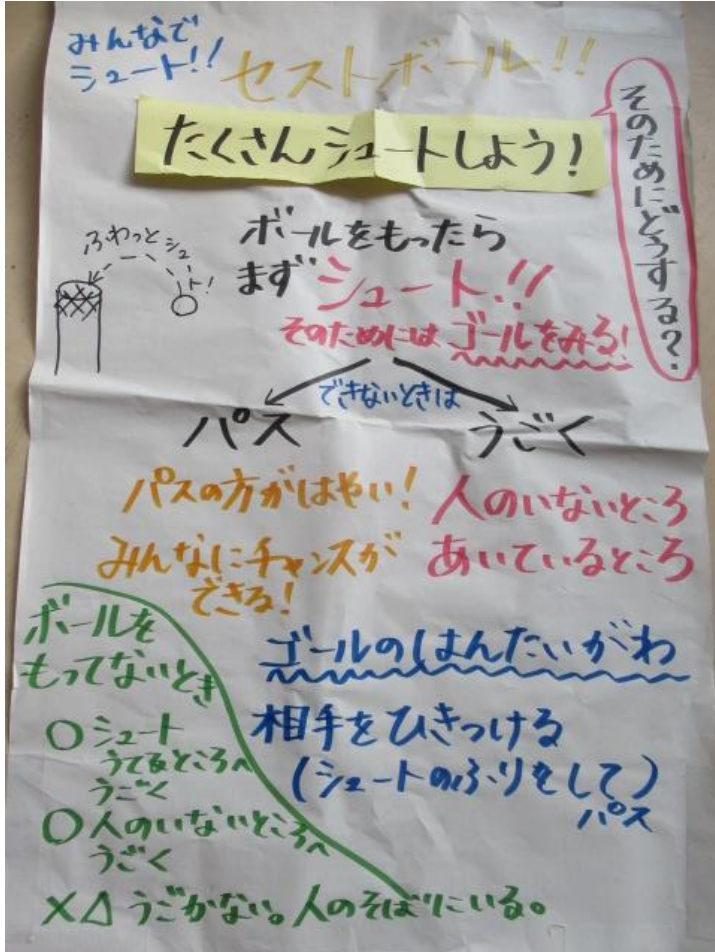 みんなで
シュート!!
セストボール!!
たくさんシュートしよう!
そのためにどうする?
ふわっとシュート!
ボールをもったら
まずシュート!!
そのためにはゴールをみる!
できないときは
パス
うごく
パスの方がはやい!
みんなにチャンスが
できる!
人のいないところ
あいているところ
ゴールのはんたいがわ
相手をひきつける
(シュートのふりをして)
パス
ボールを
もってないとき
○シュート
うてるところへ
うごく
○人のいないところへ
うごく
×△うごかない。人のそばにいる。